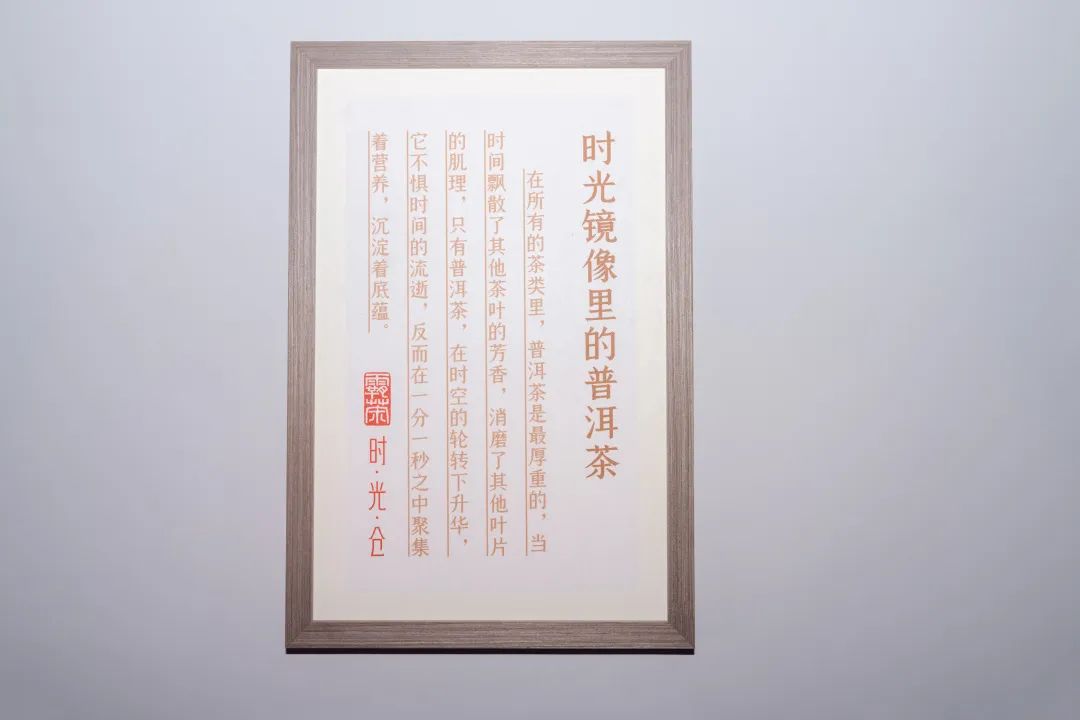 时光镜像里的普洱茶
在所有的茶类里，普洱茶是最厚重的，当
时间飘散了其他茶叶的芳香，消磨了其他叶片
的肌理，只有普洱茶，在时空的轮转下升华，
它不惧时间的流逝，反而在一分一秒之中聚集
着营养，沉淀着底蕴。
时·光·仓